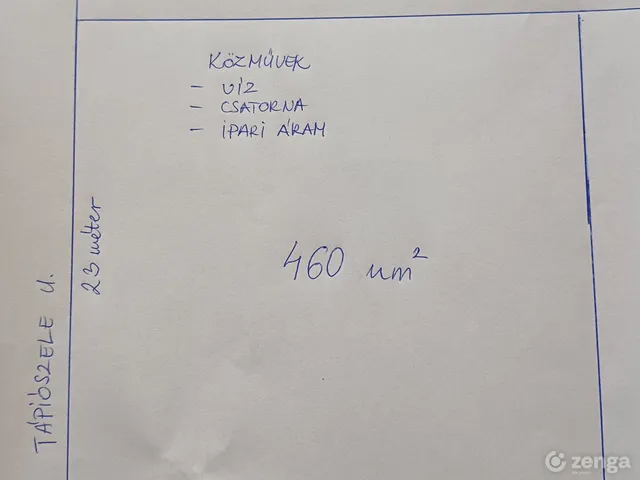 KÖZMŰVEK
- VÍZ
- CSATORNA
- IPARI ÁRAM
23 méter
460 nm²
TÁPIÓSZELE U.
zenga